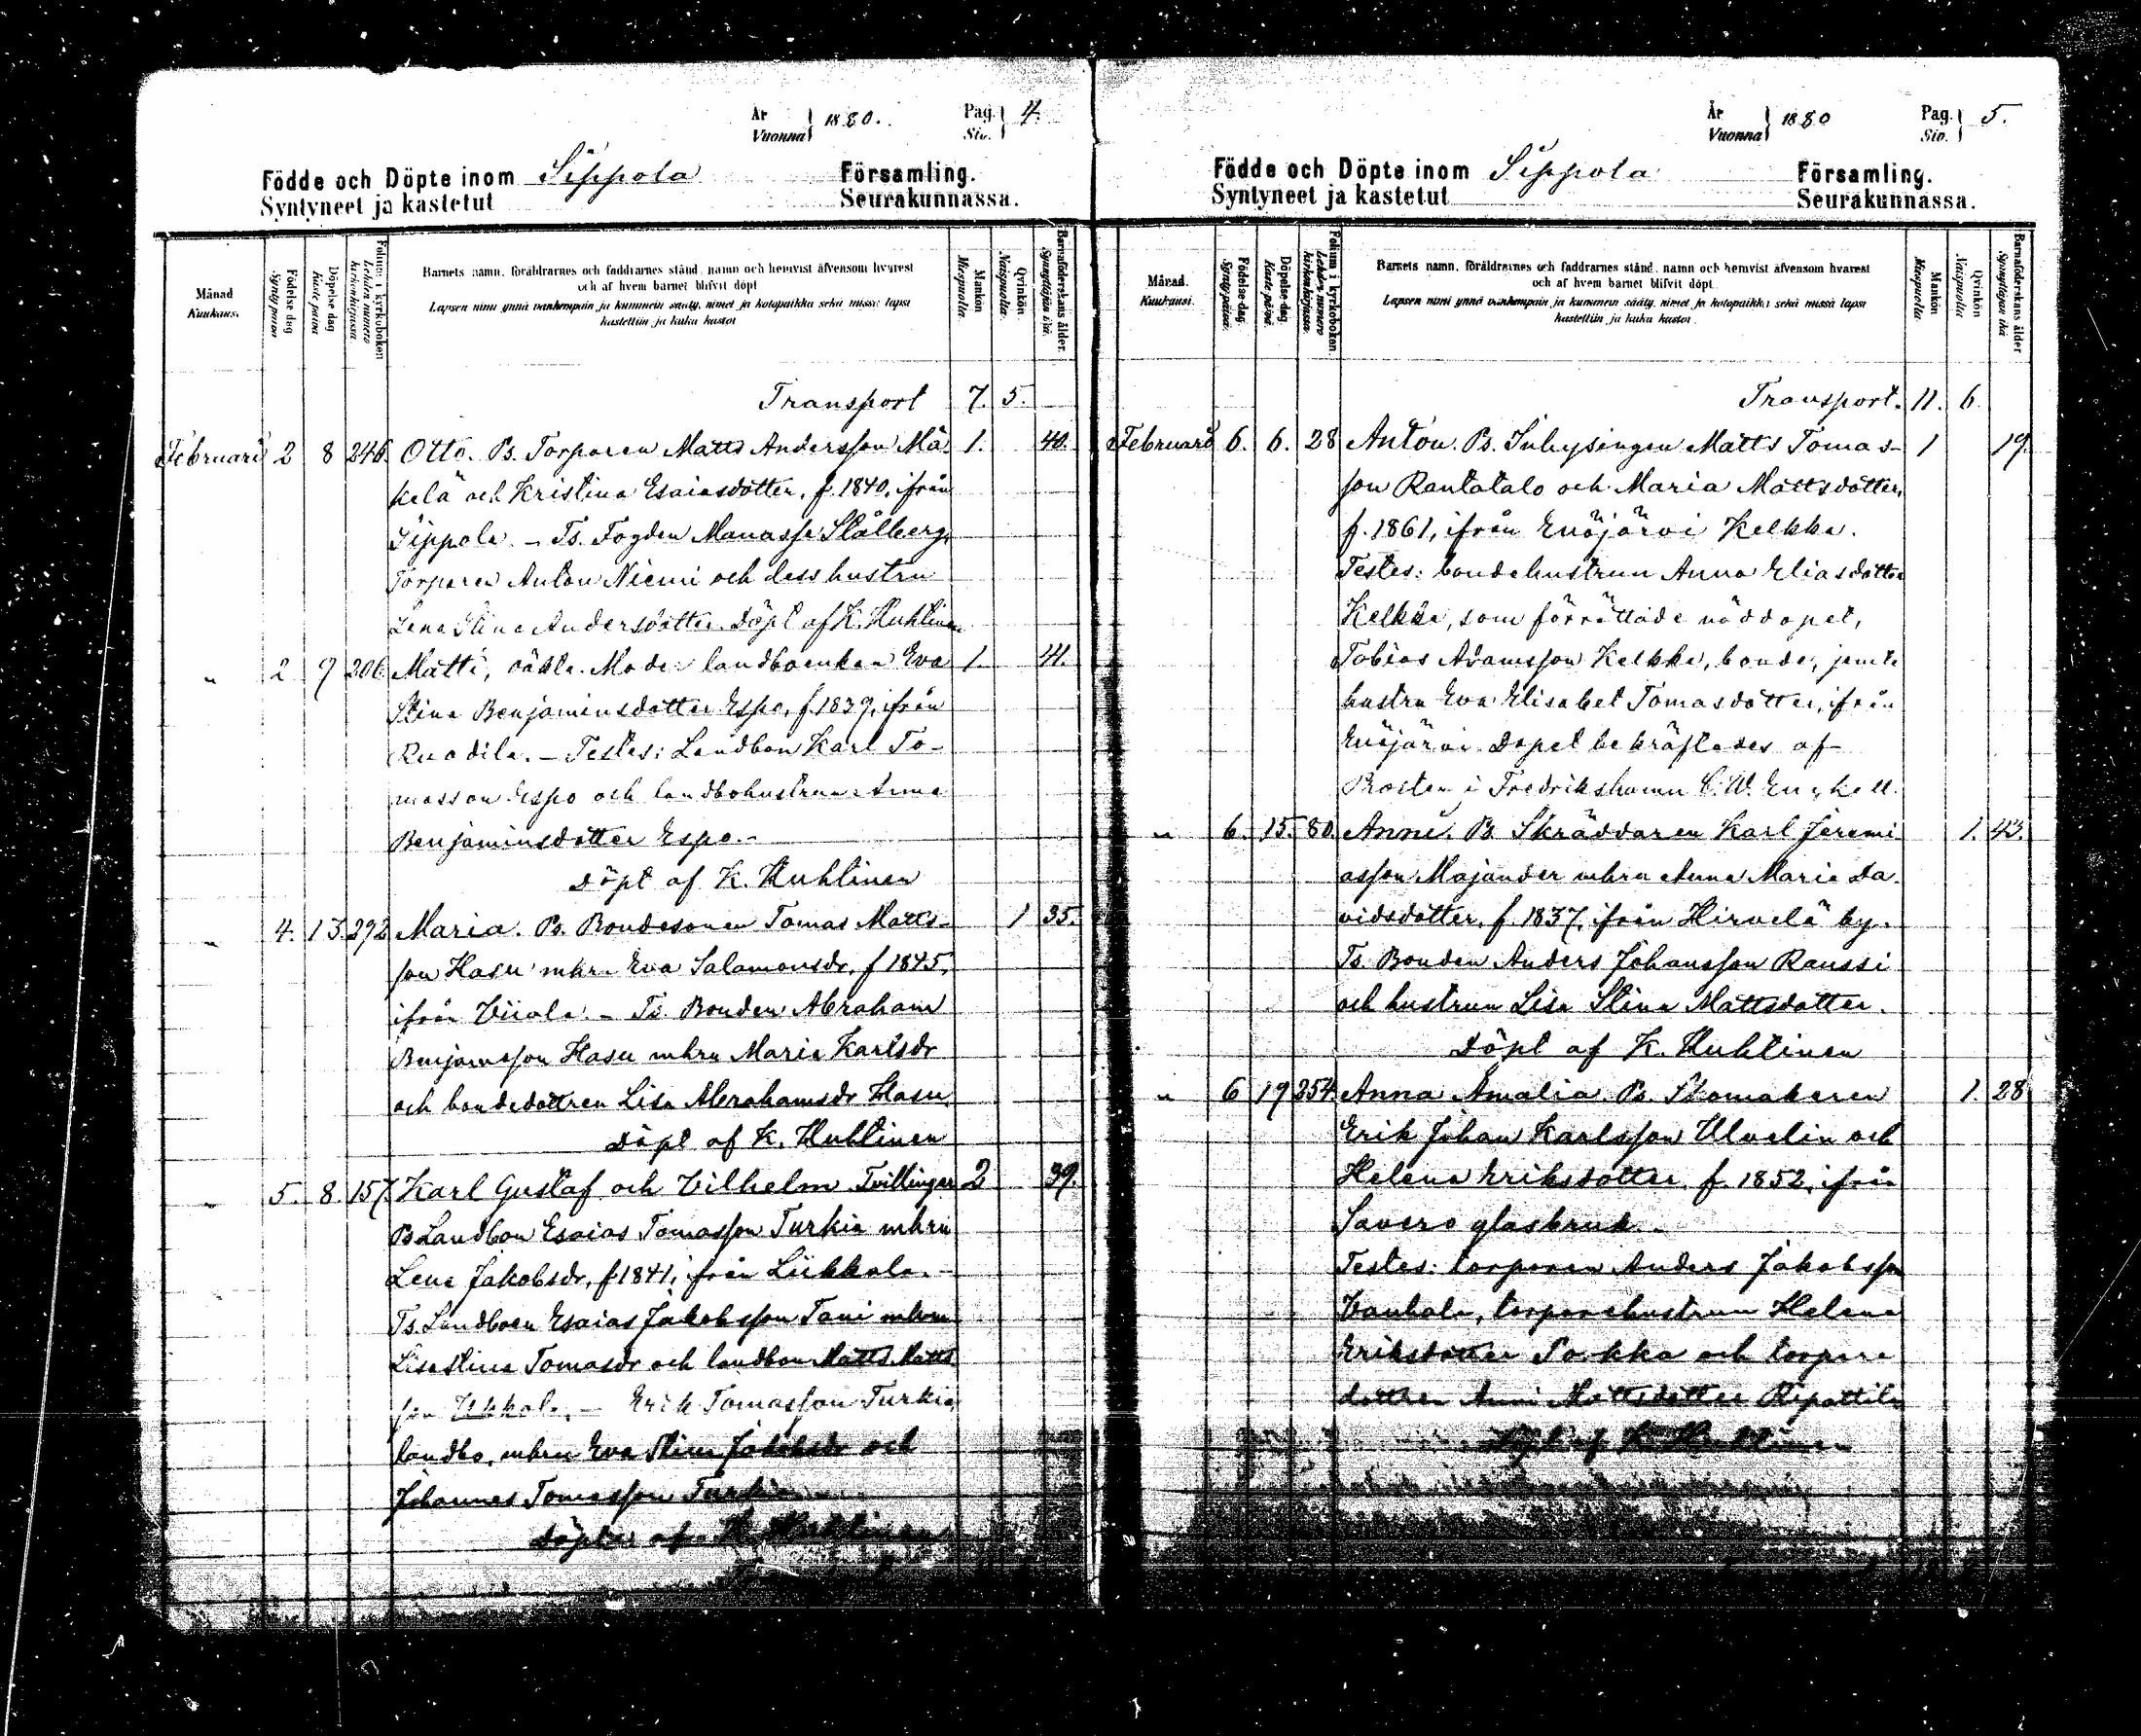 År
Vuonna
1880.
Pag.
Siv.
4.
Födde och Döpte inom Sippola Församling.
Syntyneet ja kastetut Seurakunnassa.
Månad
Kuukaus.
Födelse dag
Syntypäivä
Döpelse dag
Kaste päivä
Folium i kyrkoboken
Lehden numero kirkonkirjassa
Barnets namn, föräldrarnes och faddrarnes stånd, namn och hemvist äfvensom hvarest
och af hvem barnet blifvit döpt
Lapsen nimi ynnä vanhempain ja kummein sääty, nimet ja kotopaikka sekä missä lapsi
kastettiin ja kuka kastoi
Mankön
Miespuolia.
Qvinkön
Naispuolia.
Barnaföderskans ålder.
Synnyttäjän ikä.
Transport 7. 5.
Februari 2 8 246. Otto. Ps. Torparen Matts Andersson Mä- 1. 40.
kelä och Kristina Esaiasdotter, f. 1840, ifrån
Sippola. – Ts. Fogden Manasse Stålberg,
Torparen Anton Niemi och dess hustru
Lena Stina Andersdotter. Döpt af K. Huhtinen
" 2 9 206 Matti, oäkta. Moder landboenkan Eva 1. 41.
Stina Benjaminsdotter Espo, f. 1839, ifrån
Ruodila. – Testes: Landbon Karl To-
masson Espo och landbohustrun Anna
Benjaminsdotter Espo. –
Döpt af K. Huhtinen
" 4. 13. 292 Maria. Ps. Bondesonen Tomas Matts- 1 35.
son Hasu mhru Eva Salamonsdr, f 1845,
ifrån Viiala. – Ts. Bonden Abraham
Benjamsson Hasu mhru Maria Karlsdr
och bondedottren Lisa Abrahamsdr Hasu.
Döpt af K. Huhtinen
" 5. 8. 157. Karl Gustaf och Vilhelm Tvillingar 2 39.
Ps Landbon Esaias Tomasson Turkia mhru
Lena Jakobsdr, f. 1841, ifrån Liikkala. –
Ts. Landboen Esaias Jakobsson Tani mhru
Lisa Stina Tomasdr och landbon Matts Matts
son – Erik Tomasson Turkia,
landbo, mhru Eva Stina Jakobsdr och
Johannes Tomasson Turkia
Döpter af K. Huhtinen
År
Vuonna
1880
Pag.
Siv.
5.
Födde och Döpte inom Sippola Församling.
Syntyneet ja kastetut Seurakunnassa.
Månad.
Kuukausi.
Födelse-dag.
Syntypäivä.
Döpelse-dag.
Kaste päivä.
Folium i kyrkoboken.
Lehden numero kirkonkirjassa.
Barnets namn, föräldrarnes och faddrarnes stånd, namn och hemvist äfvensom hvarest
och af hvem barnet blifvit döpt.
Lapsen nimi ynnä vanhempain ja kummein sääty, nimet ja kotopaikka sekä missä lapsi
kastettiin ja kuka kastoi.
Mankön
Miespuolia.
Qvinkön
Naispuolia
Barnaföderskans ålder
Synnyttäjän ikä
Transport. 11. 6.
Februari 6. 6. 28 Anton. Ps. Inhysingen Matts Tomas- 1 19.
son Rantatalo och Maria Mattsdotter,
f. 1861, ifrån Enäjärvi Kelkka.
Testes: bondehustrun Anna Eliasdotter
Kelkka, som förrättade nöddopet,
Tobias Adamsson Kelkka, bonde, jemte
hustru Eva Elisabet Tomasdotter, ifrån
Enäjärvi. Dopet bekräftades af
Prosten i Fredrikshamn C. W. Engkell.
" 6. 15. 80. Anni. Ps. Skräddaren Karl Jeremi 1. 43.
asson Majander mhru Anna Maria Da-
vidsdotter, f. 1837, ifrån Hirvelä by.
Ts. Bonden Anders Johansson Raussi
och hustrun Lisa Stina Mattsdotter.
Döpt af K. Huhtinen
" 6 19 254. Anna Amalia. Ps. Skomakeren 1. 28
Erik Johan Karlsson Ulvelin och
Helena Eriksdotter, f. 1852, ifrån
Savero glasbruk.
Testes: torparen Anders Jakobsson
Vanhala, torparehustrun Helena
Eriksdotter och torpare
dottren Anni Mattsdotter Ripattila
Döpt af K. Huhtinen